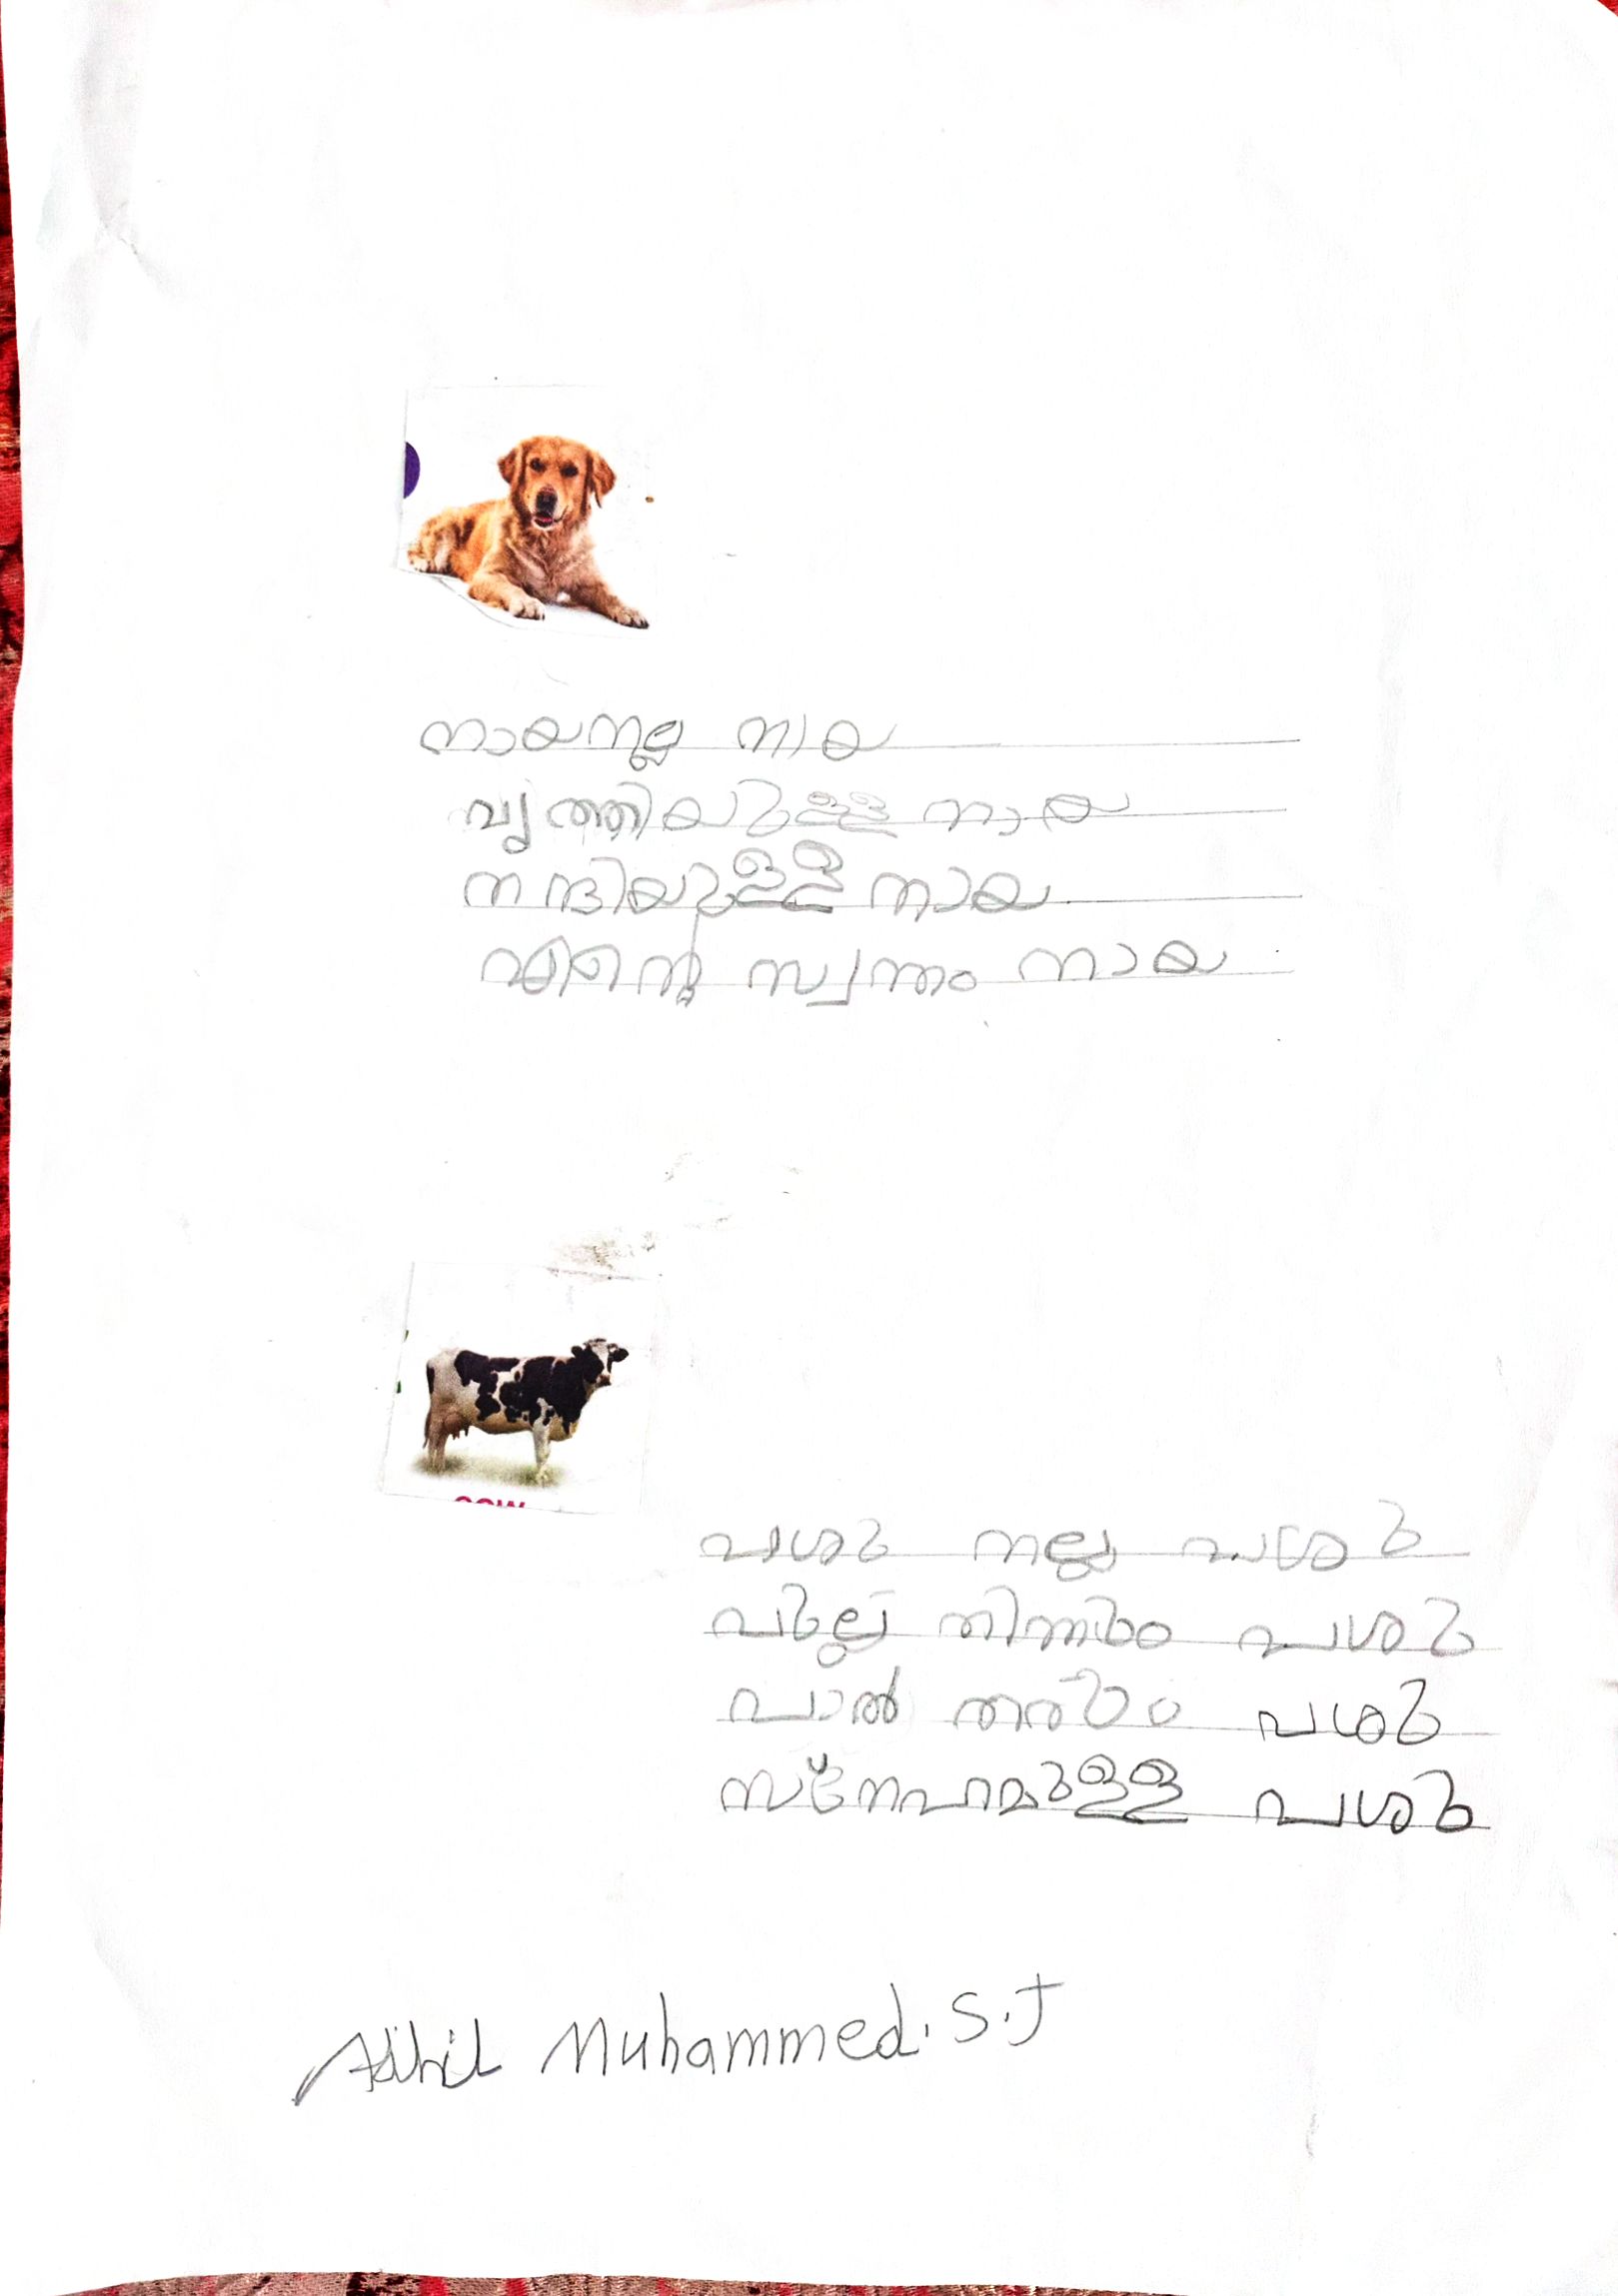 നായ നല്ല നായ
വൃത്തിയുള്ള നായ
നന്ദിയുള്ള നായ
എന്റെ സ്വന്തം നായ
പശു നല്ല പശു
പുല്ല് തിന്നും പശു
പാൽ തരും പശു
സ്നേഹമുള്ള പശു
Muhammed. S.J